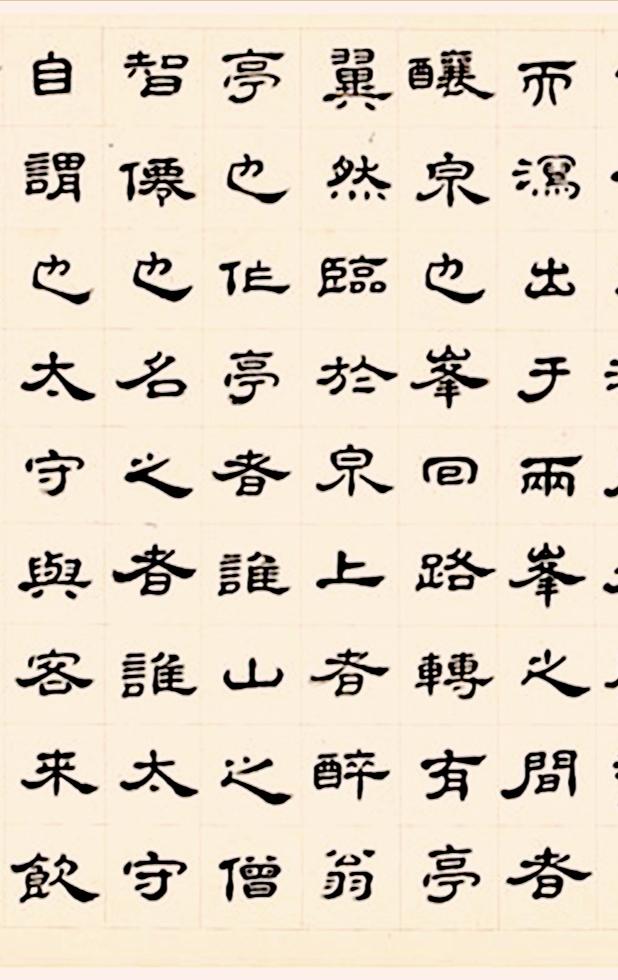 而瀉出于兩峯之間者
釀泉也峯回路轉有亭
翼然臨於泉上者醉翁
亭也作亭者誰山之僧
智僊也名之者誰太守
自謂也太守與客来飲